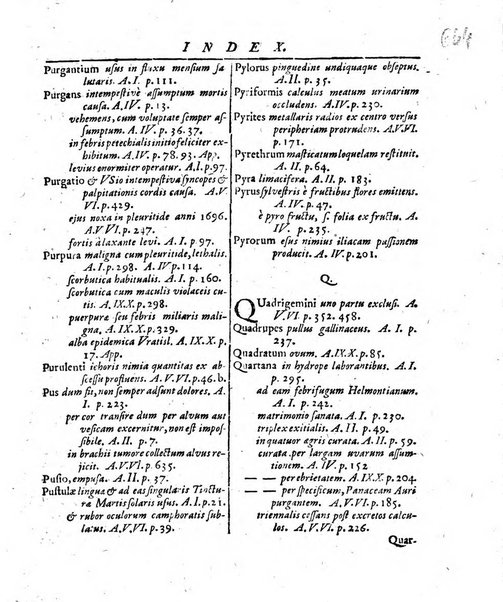 664
INDEX.
Purgantium usus in fluxu mensium sa
lutaris. A. I. p. 111.
Purgans intempestivè assumptum mortis
causa. A. IV. p. 13.
vehemens, cum voluptate semper as-
sumptum. A. IV. p. 36. 37.
in febris petechialis initio feliciter ex-
hibitum. A. IV. p. 78. 93. App.
levius enormiter operatur. A. I. p. 97.
Purgatio & VSio intempestiva syncopes &
palpitationis cordis causa. A. V
VI. p. 429.
ejus noxa in pleuritide anni 1696.
A. V VI. p. 247.
fortis à laxante levi. A. I. p. 97.
Purpura maligna cum pleuritide, lethalis.
A. I. p. 298. A. IV p. 114.
scorbutica habitualis. A. I. p. 160.
scorbutica cum maculis violaceis cu-
tis. A. IX. X. p. 298.
puerperæ seu febris miliaris mali-
gna. A. IX. X. p. 329.
alba epidemica Vratisl. A. IX. X. p.
17. App.
Purulenti ichoris nimia quantitas ex ab-
scessu profluens. A. V. VI. p. 46. b.
Pus dum fit, non semper adsunt dolores. A.
I. p. 223.
per cor transire dum per alvum aut
vesicam excernitur, non est impos-
sibile. A. II. p. 7.
in brachii tumore collectum alvus re-
jicit. A. V. VI. p. 635.
Pusio, empusa. A. II. p. 73.
Pustulæ linguæ & ad eas singularis Tinctu-
ra Martis solaris usus. A. I. p. 21.
& rubor oculorum camphoratis sub-
latus. A. V. VI. p. 39.
Pylorus pinguedine undiquaque obseptus.
A. II. p. 35.
Pyriformis calculus meatum urinarium
occludens. A. IV. p. 230.
Pyrites metallaris radios ex centro versus
peripheriam protrudens. A. V. VI.
p. 171.
Pyrethrum masticatum loquelam restituit.
A. II. p. 64.
Pyra limacifera. A. II. p. 183.
Pyrus sylvestris è fructibus flores emittens.
A. IV. p. 47.
è pyro fructu, s. folia ex fructu. A.
IV. p. 235.
Pyrorum esus nimius iliacam passionem
producit. A. IV. p. 201.
Q.
QUadrigemini uno partu exclusi. A.
V. VI. p. 352. 458.
Quadrupes pullus gallinaceus. A. I. p.
237.
Quadratum ovum. A. IX. X. p. 85.
Quartana in hydrope laborantibus. A. I
p. 295.
ad eam febrifugum Helmontianum.
A. I. p. 242.
matrimonio sanata. A. I. p. 230.
triplex exitialis. A. I. p. 230.
in quatuor agris curata. A. II. p. 59.
curata. per largam uvarum assum-
tionem. A. IV. p. 152
— — per ebrietatem. A. IX. X. p. 204.
— — per specificum, Panaceam Auri
purgantem. A. V. VI. p. 185.
triennalis cessans post excretos calcu-
los. A. V. VI. p. 226.
Quar-